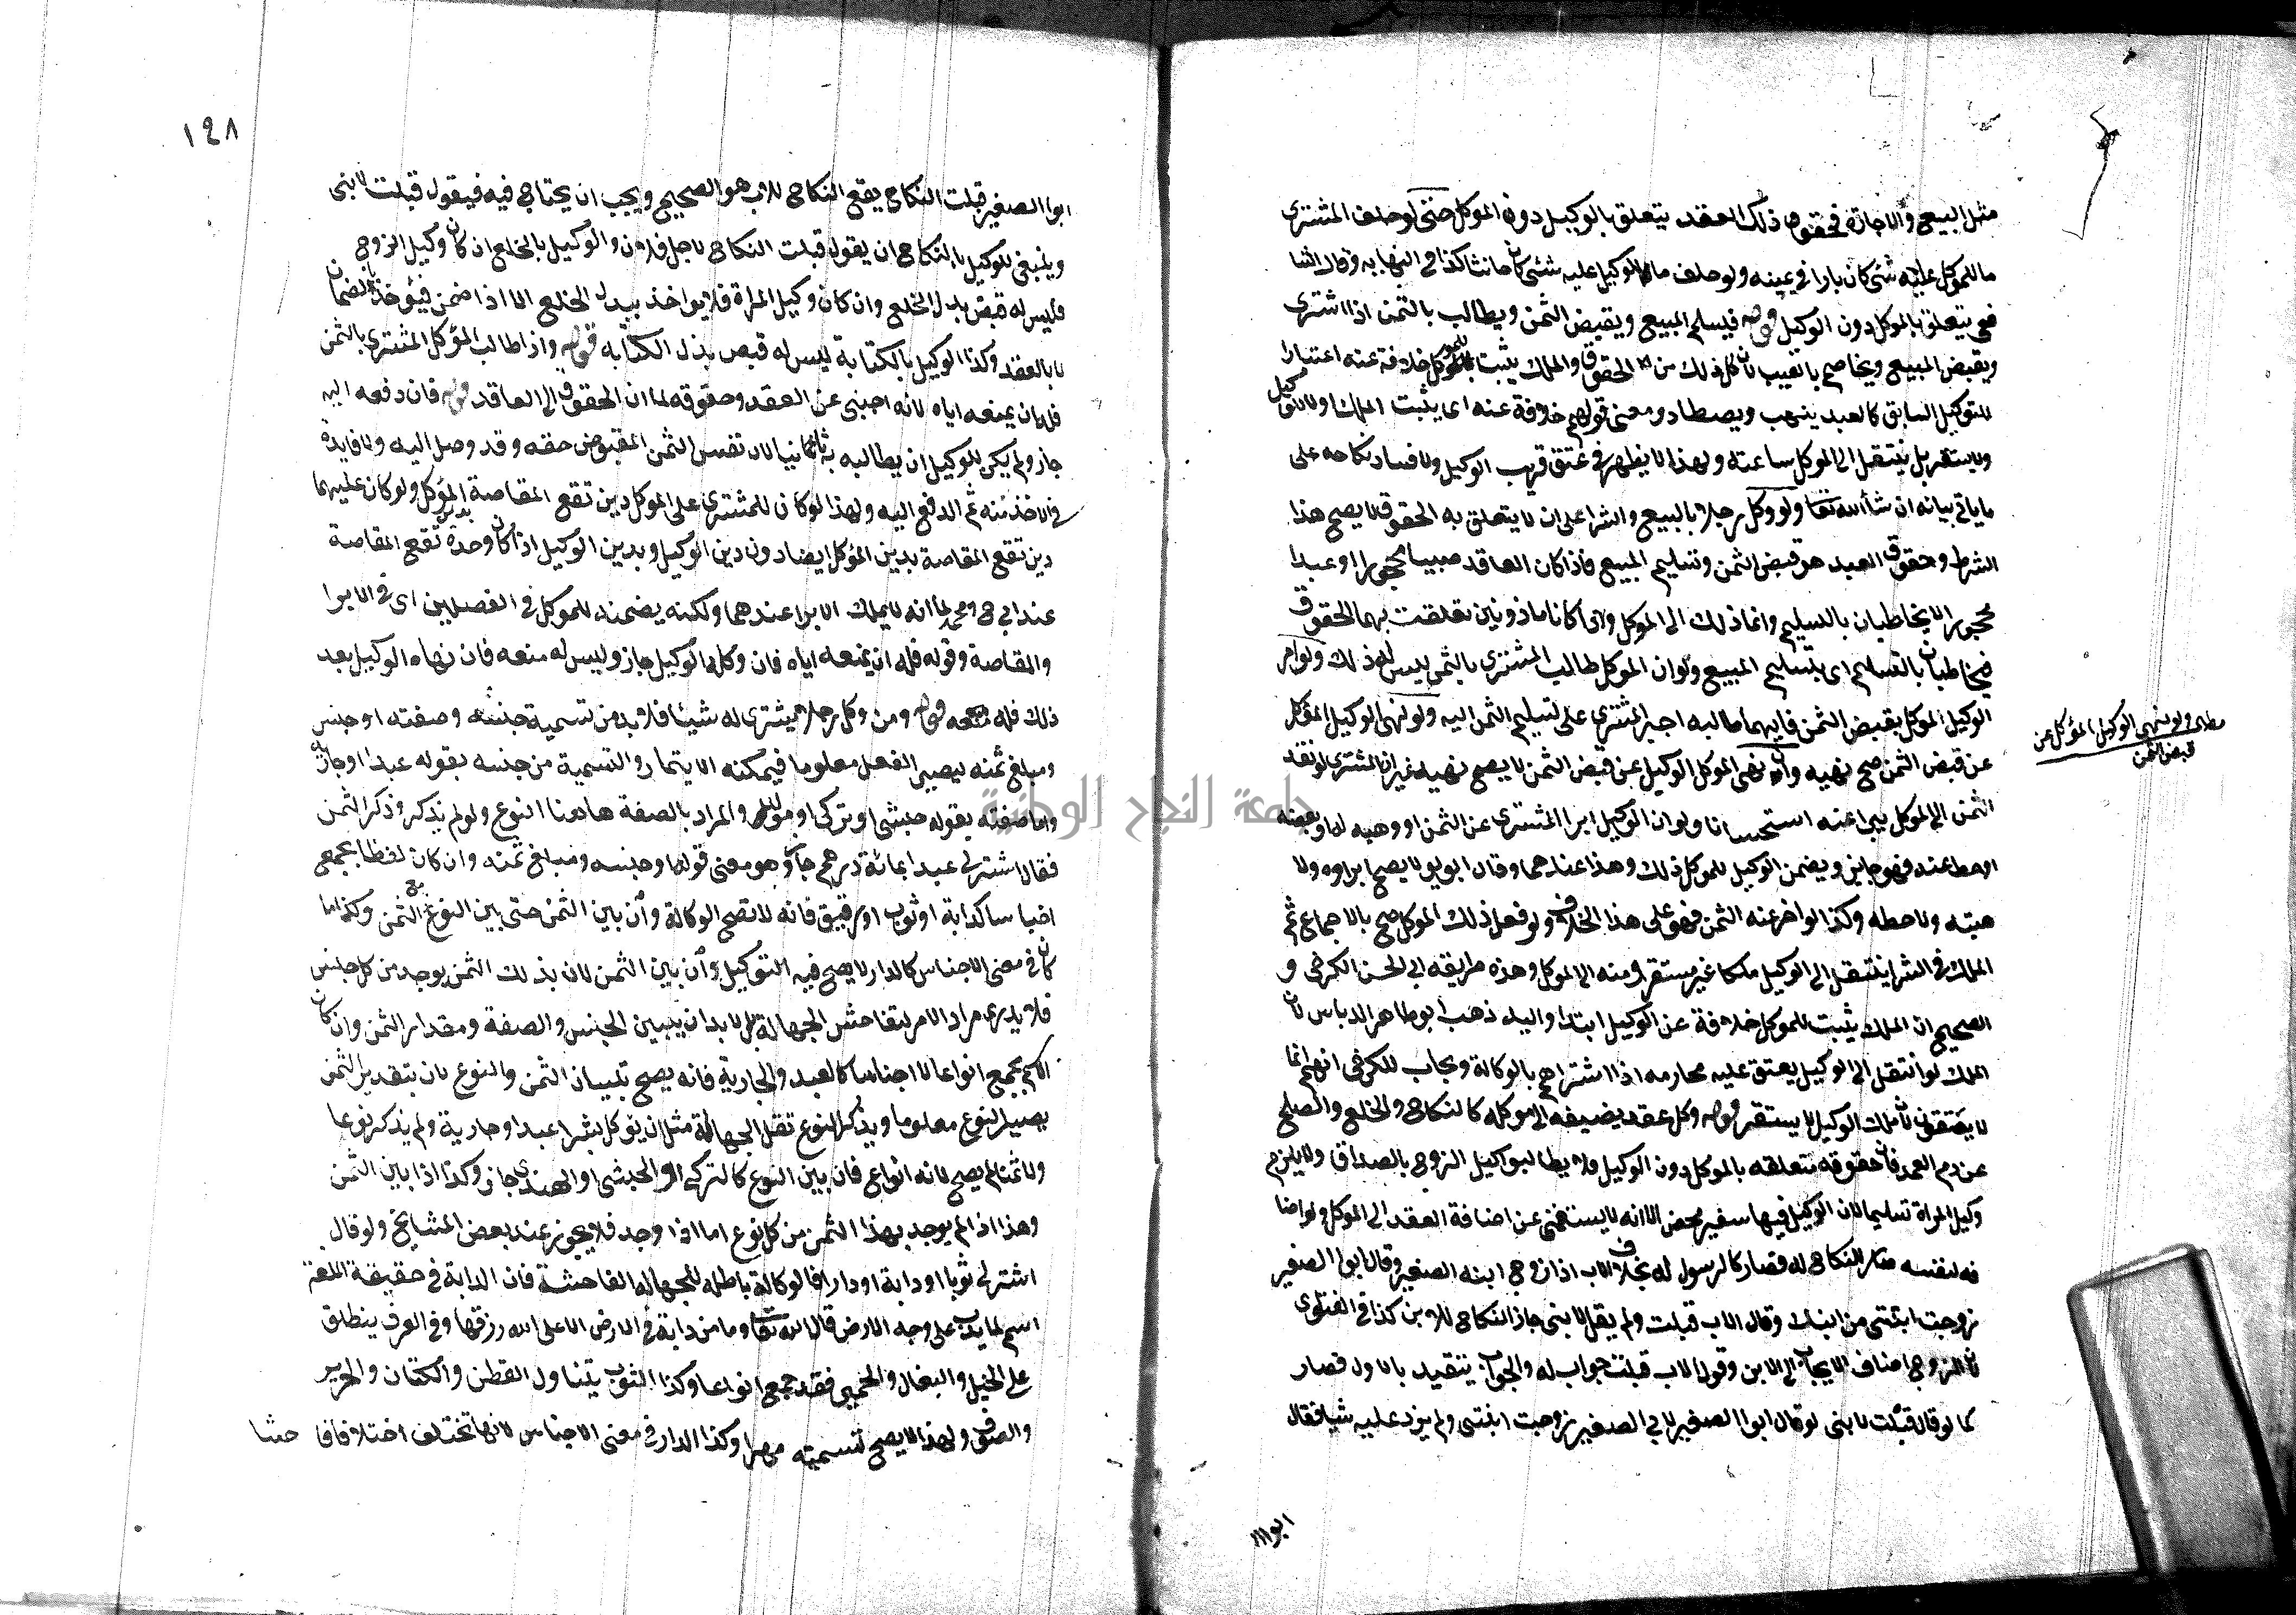 مثل البيع والاجارة فحقوق ذلك العقد يتعلق بالوكيل دون الموكل حتى لو حلف المشتري
ما للموكل عليه شئ كان بارا في يمينه ولو حلف ما للوكيل عليه شئ كان حانثا كذا في النهاية وقال الشا
فعي يتعلق بالموكل دون الوكيل قوله فيسلم المبيع ويقبض الثمن ويطالب بالثمن اذا اشترى
ويقبض المبيع ويخاصم بالعيب لان كل ذلك من الحقوق والملك يثبت للموكل خلافة عنه اعتبارا
للتوكيل السابق كالعبد يتهب ويصطاد ومعنى قولهم خلافة عنه اى يثبت الملك اولا للوكيل
ولا يستقر بل ينتقل الى الموكل ساعته ولهذا لا يظهر في عتق قريب الوكيل ولا فساد نكاحه على
ما ياتي بيانه ان شاء الله تعا ولو وكل رجلا بالبيع والشرا على ان لا يتعلق به الحقوق لا يصح هذا
الشرط وحقوق العبد هو قبض الثمن وتسليم المبيع فاذا كان العاقد صبيا محجورا او عبدا
محجورا لا يخاطبان بالتسليم وانما ذلك الى الموكل وان كانا ماذونين تعلقت بهما الحقوق
فيخاطبان بالتسليم اى بتسليم المبيع ولو ان الموكل طالب المشتري بالثمن ليس له ذلك ولو امر
الوكيل الموكل بقبض الثمن فايهما طالبه اجبر المشتري على تسليم الثمن اليه ولو نهى الوكيل الموكل
عن قبض الثمن صح نهيه وان نهى الموكل الوكيل عن قبض الثمن لا يصح نهيه غير ان المشتري لو نقد
الثمن الى الموكل يبرا عنه استحسانا ولو ان الوكيل ابرا المشتري عن الثمن او وهبه له او بعضه
او حط عنه فهو جايز ويضمن الوكيل للموكل ذلك وهذا عندهما وقال ابو يو لا يصح ابراوه ولا
هبته ولا حطه وكذا لو اخر عنه الثمن فهو على هذا الخلاف ولو فعل ذلك الموكل صح بالاجماع ثم
الملك في الشرا ينتقل الى الوكيل ملكا غير مستقر ومنه الى الموكل وهذه طريقه ابي الحسن الكرخي و
الصحيح ان الملك يثبت للموكل خلافة عن الوكيل ابتدا واليه ذهب ابو طاهر الدباس لان
الملك لو انتقل الى الوكيل يعتق عليه محارمه اذا اشتراهم بالوكالة ويجاب للكرخي انهم انما
لا يعتقون لان ملك الوكيل لا يستقر قوله وكل عقد يضيفه الى موكله كالنكاح والخلع والصلح
عن دم العمد فان حقوقه تتعلقه بالموكل دون الوكيل فلا يطالب وكيل الزوج بالصداق ولا يلزم
وكيل المراة تسليما لان الوكيل فيها سفير محض الا انه لا يستغني عن اضافة العقد الى الموكل ولو اضا
فه لنفسه صار النكاح له فصار كالرسول له بخلاف الاب اذا زوج ابنه الصغير وقال ابو الصغير
زوجت ابنتي من ابنك وقال الاب قبلت ولم يقل لابني جاز النكاح للابن كذا في الفتاوى
لان المزوج اضاف الايجاب الى الابن وقول الاب قبلت جواب له والجواب يتقيد بالاول فصار
كما لو قال قبلت لابني لو قال ابو الصغيرة لابي الصغير زوجت ابنتي ولم يزد عليه شيا فقال
ابو ااا
مطلب ولو نهى الوكيل الموكل عن
قبض الثمن
١٤٨
ابو الصغير قبلت النكاح يقع النكاح للاب هو الصحيح ويجب ان يحتاج فيه فيقول قبلت لابني
وينبغي للوكيل بالنكاح ان يقول قبلت النكاح لاجل فلان والوكيل بالخلع ان كان وكيل الزوج
فليس له قبض بدل الخلع وان كان وكيل المراة فلا يواخذ ببدل الخلع الا اذا ضمن فيؤخذ بالضمان
لا بالعقد وكذا الوكيل بالكتابة ليس له قبض بدل الكتابه قوله واذا طالب الموكل المشتري بالثمن
فله ان يمنعه اياه لانه اجنبي عن العقد وحقوقه لما ان الحقوق الى العاقد قوله فان دفعه اليه
جاز ولم يكن للوكيل ان يطالبه به ثانيا لان نفس الثمن المقبوض حقه وقد وصل اليه ولا فايدة
في الاخذ منه ثم الدفع اليه ولهذا لو كان للمشتري على الموكل دين تقع المقاصة بدين الموكل ولو كان عليهما
دين تقع المقاصة بدين الموكل ايضا دون دين الوكيل وبدين الوكيل اذا كان وحده تقع المقاصة
عند ابي ح ومحمد لما انه لا يملك الابرا عندهما ولكنه يضمنه للموكل في الفصلين اى في الابرا
والمقاصة وقوله فله ان يمنعه اياه فان وكله الوكيل جاز وليس له منعه فان نهاه الوكيل بعد
ذلك فله منعه قوله ومن وكل رجلا يشتري له شيئا فلا بد من تسمية جنسه وصفته او جنسه
ومبلغ ثمنه ليصير الفعل معلوما فيمكنه الايتمار والتسمية من جنسه بقوله عبدا او جارية
واما صفته بقوله حبشي او تركي او مولد والمراد بالصفة هاهنا النوع ولو لم يذكر وذكر الثمن
فقال اشتر لي عبدا بمائة درهم جاز وهو معنى قوله او جنسه ومبلغ ثمنه وان كان لفظا يجمع
اجناسا كدابة او ثوب او رقيق فانه لا تصح الوكالة وان بين الثمن حتى يبين النوع مع الثمن وكذا ما
كان في معنى الاجناس كالدار لا يصح فيه التوكيل وان بين الثمن لان بذلك الثمن يوجد من كل جنس
فلا يدرى مراد الامر لتفاحش الجهالة بل لا بد ان يبين الجنس والصفة ومقدار الثمن وان كان
الاسم يجمع انواعا لا اجناسا كالعبد والجارية فانه يصح تبيان الثمن والنوع لان بتقدير الثمن
يصير النوع معلوما وبذكر النوع تقل الجهالة مثل ان يوكل بشرا عبد او جارية ولم يذكر نوعا
ولا ثمنا لم يصح لانه انواع فان بين النوع كالتركي او الحبشي او الهندي جاز وكذا اذا بين الثمن
وهذا اذا لم يوجد بهذا الثمن من كل نوع اما اذا وجد فلا يجوز عند بعض المشايخ ولو قال
اشتر لي ثوبا او دابة او دارا فالوكالة باطلة للجهالة الفاحشة فان الدابة في حقيقة اللغة
اسم لما يدب على وجه الارض قال الله تعا وما من دابة في الارض الا على الله رزقها وفي العرف ينطلق
على الخيل والبغال والحمير فقد جمع انواعا وكذا الثوب يتناول القطن والكتان والحرير
والصوف ولهذا لا يصح تسميته مهرا وكذا الدار في معنى الاجناس لانها تختلف اختلافا فاحشا
جامعة النجاح الوطنية